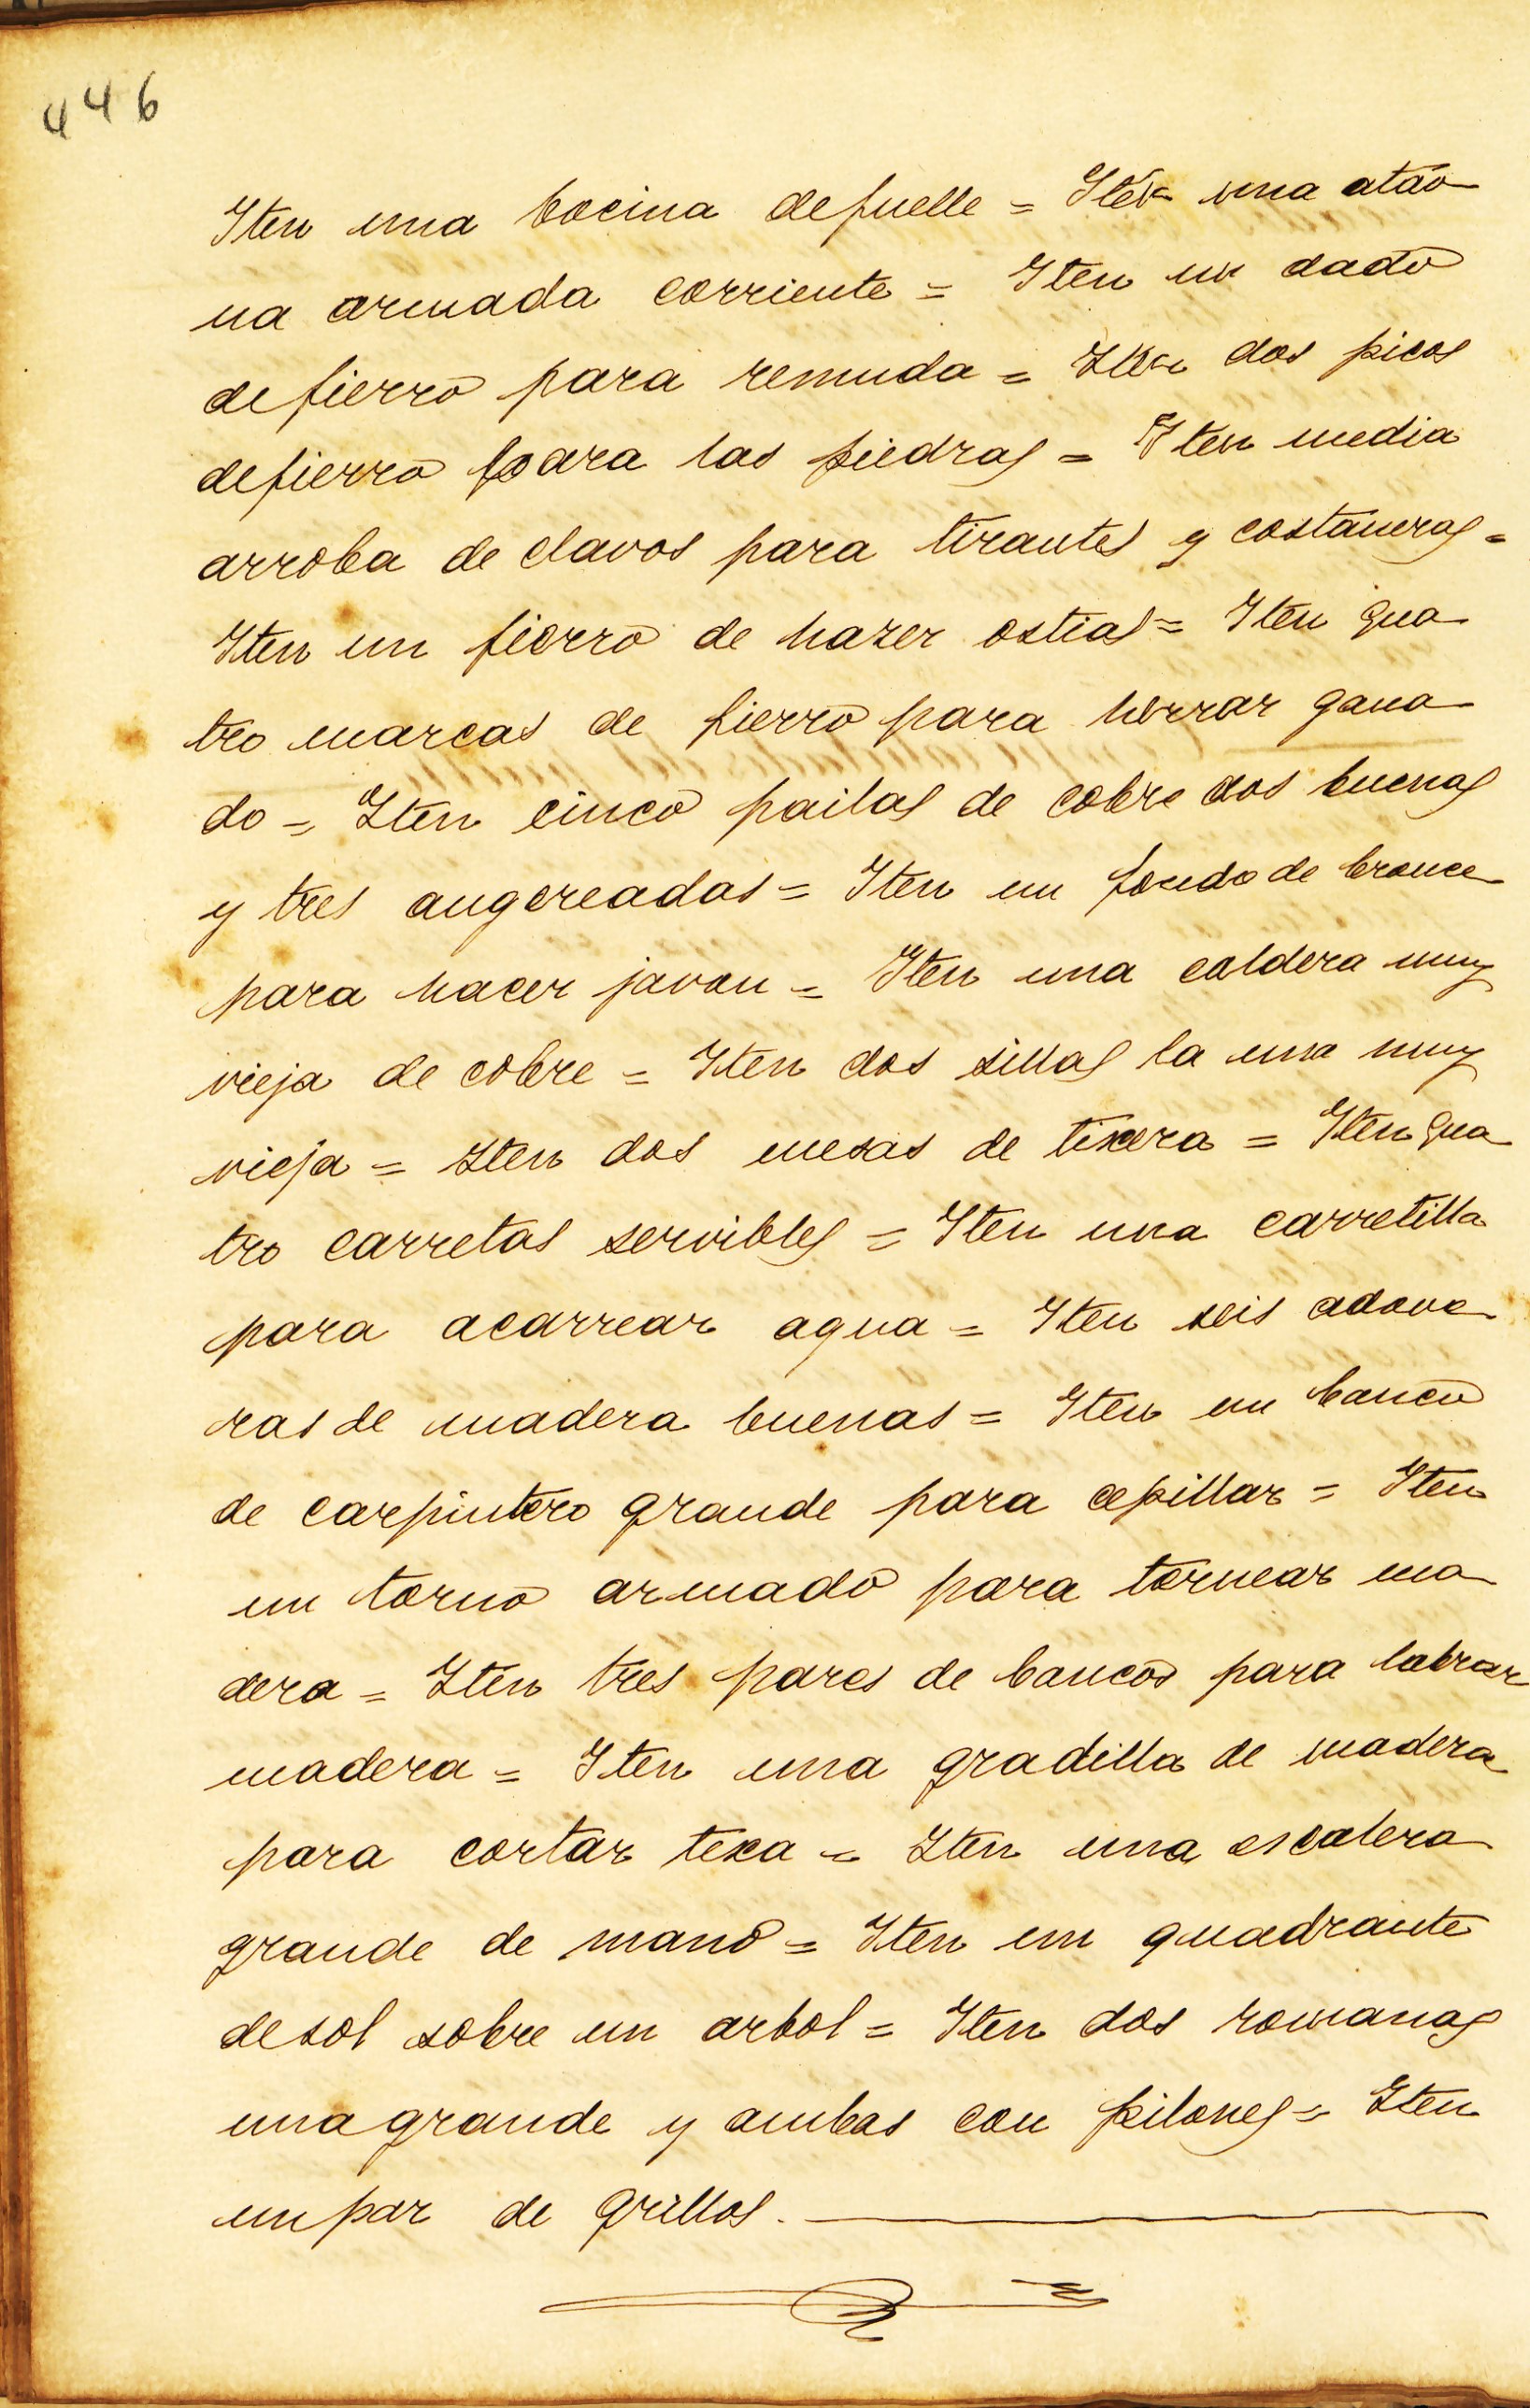 446
Iten una bocina defuelle = Iten una atao
na armada corriente = Iten un dado
defierro para remuda = Iten dos picos
defierro para las piedras = Iten media
arroba de clavos para tirantes y costaneras =
Iten un fierro de hazer ostias = Iten qua
tro marcas de fierro para herrar gana
do = Iten cinco pailas de cobre dos buenas
y tres angereadas = Iten un fondo de bronce
para hacer javon = Iten una caldera muy
vieja de cobre = Iten dos sillas la una muy
vieja = Iten dos mesas de tixera = Iten qua
tro carretas servibles = Iten una carretilla
para acarrear agua = Iten seis adove
ras de madera buenas = Iten un banco
de carpintero grande para cepillar = Iten
un torno armado para tornear ma
dera = Iten tres pares de bancos para labrar
madera = Iten una gradilla de madera
para cortar texa = Iten una escalera
grande de mano = Iten un quadrante
desol sobre un arbol = Iten dos romanas
unagrande y ambas con pilones = Iten
unpar de grillos.